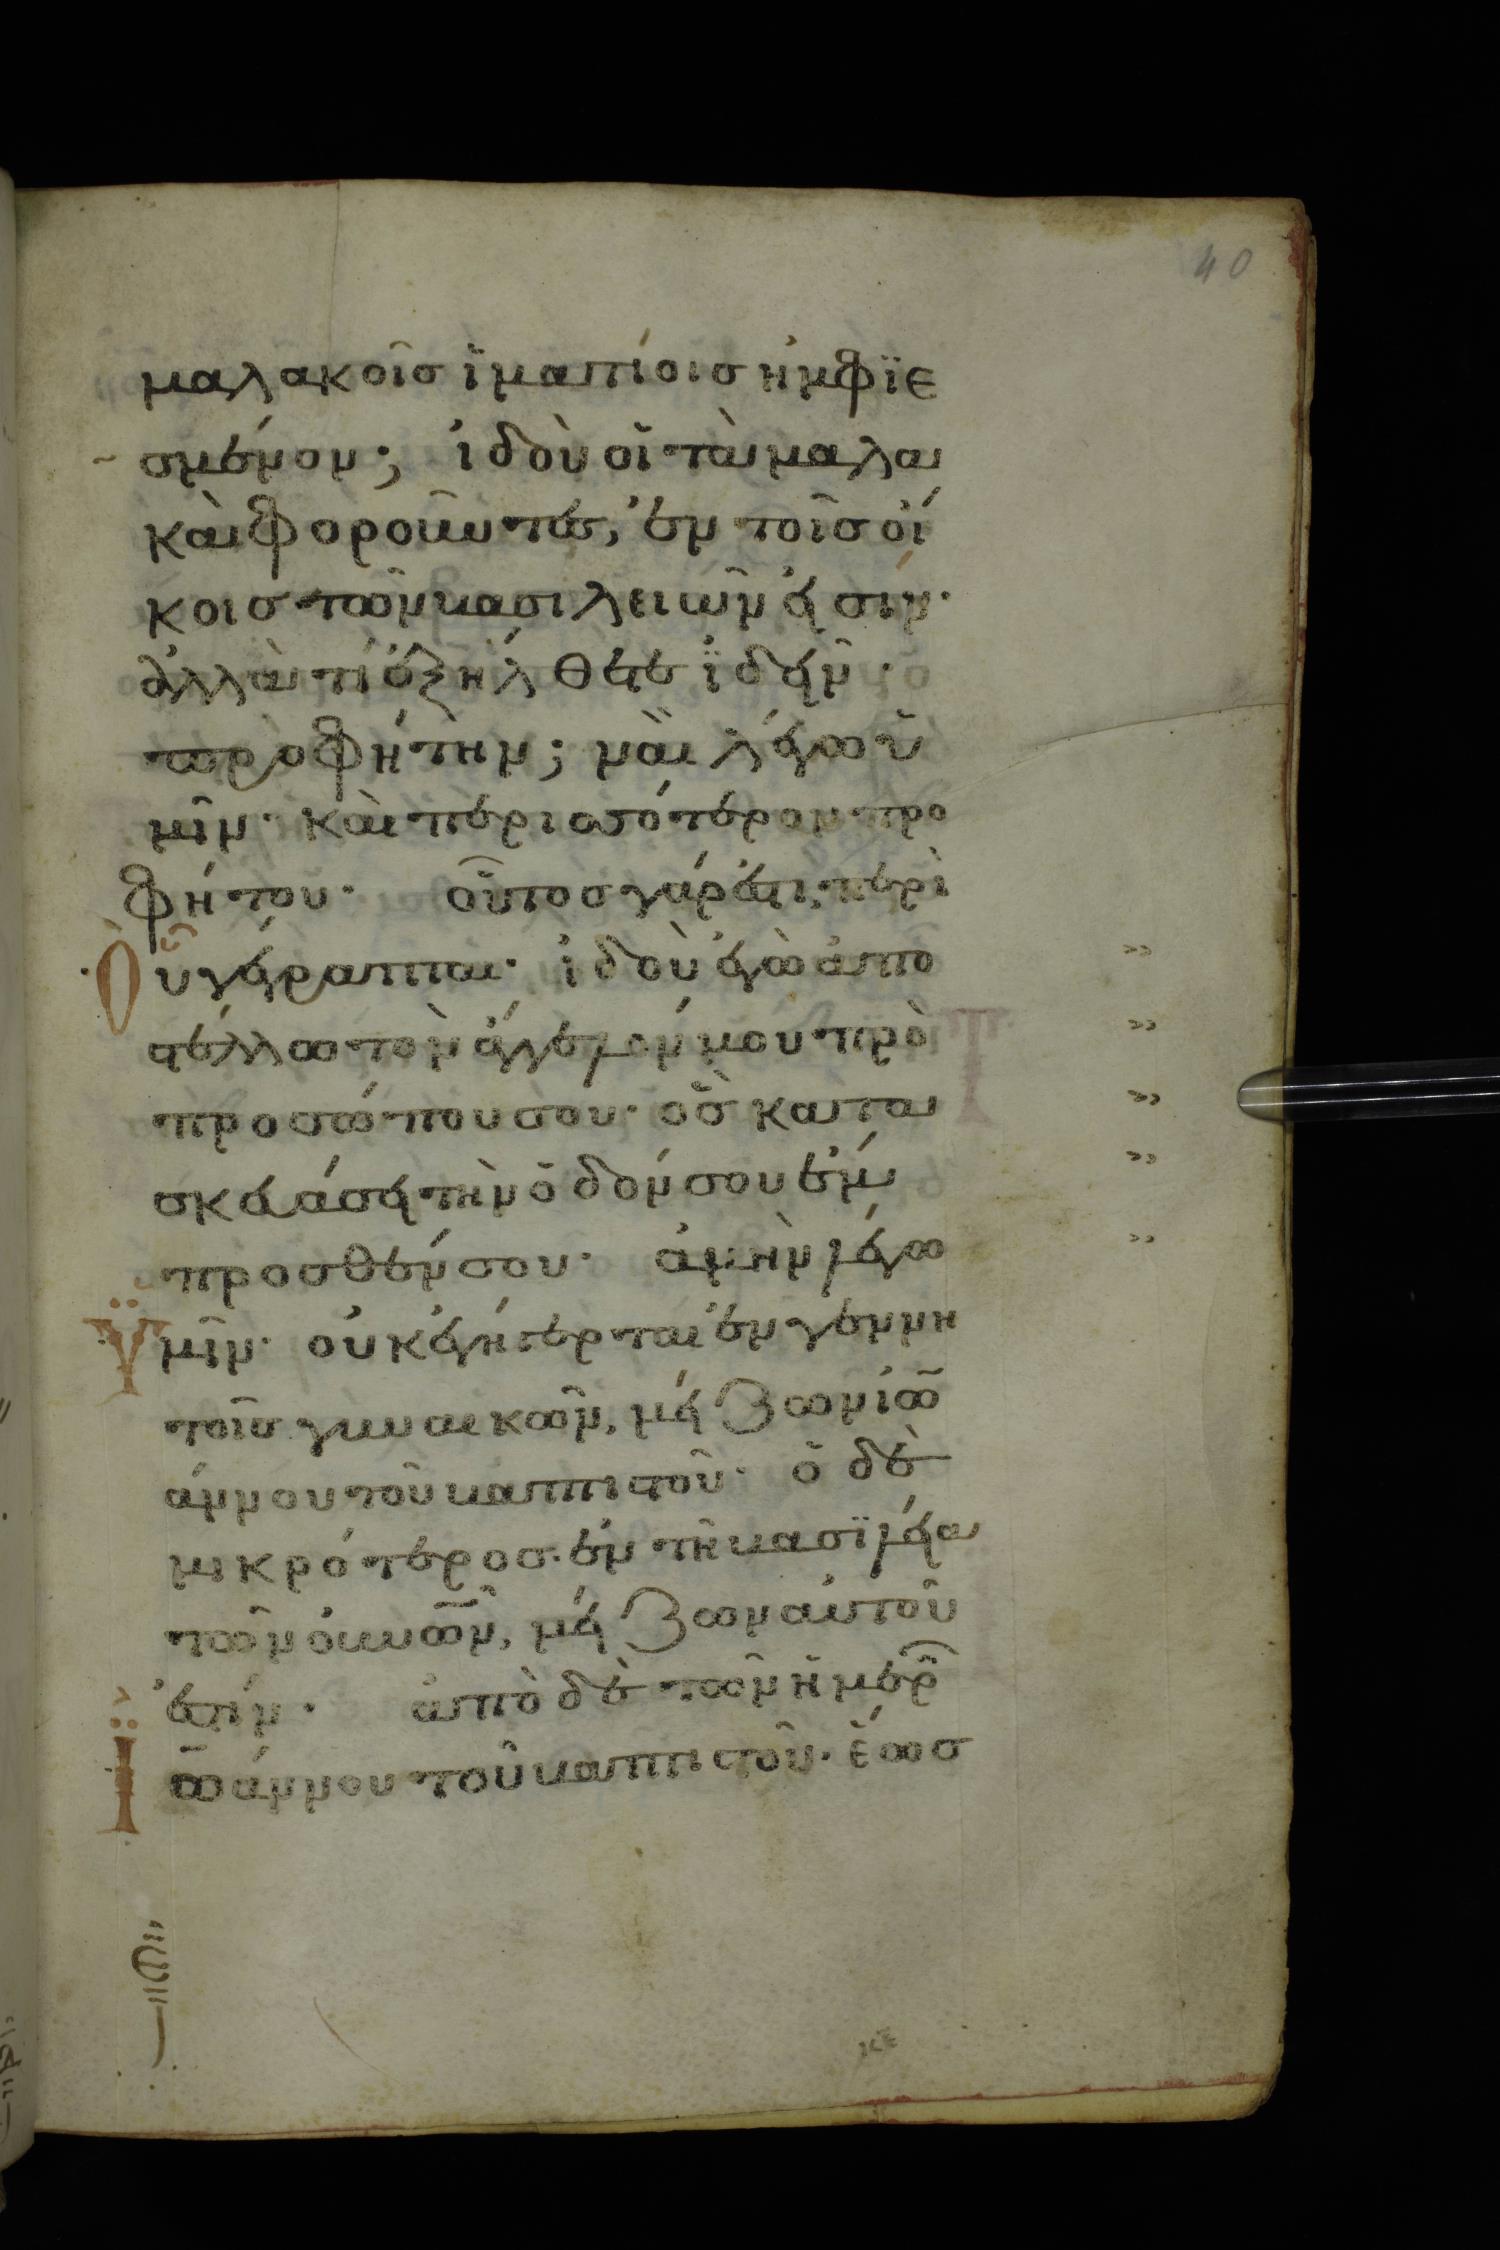 40
μαλακοῖσ ἱματίοισ ἠμφϊε
σμένον; ἰδοὺ οἱ τὰ μαλα
κὰ φοροῦντεσ, ἐν τοῖσ οἴ
κοισ τῶν βασιλειῶν εἰσίν·
ἀλλὰ τί ἐξήλθετε ἰδεῖν·
προφήτην; ναὶ λέγω ὑ
μῖν· καὶ περισσότερον προ
φήτου· οὗτοσ γάρ ἐστι, περὶ
Οὗ γέγραπται· ἰδοὺ ἐγὼ ἀπο
στέλλω τὸν ἄγγελόν μου πρὸ
προσώπου σου· ὃσ κατα
σκευάσει τὴν ὁδόν σου ἔμ
προσθέν σου· ἀμὴν λέγω
Ὑμῖν· οὐκ ἐγήγερται ἐν γεννη
τοῖσ γυναικῶν, μείζων ἰω
άννου τοῦ βαπτιστοῦ· ὁ δὲ
μικρότεροσ ἐν τῆ βασϊλεία
τῶν οὐνῶν, μείζων αὐτοῦ
ἐστίν· ἀπὸ δὲ τῶν ἡμερ
Ἰωάννου τοῦ βαπτιστοῦ· ἕωσ
κε